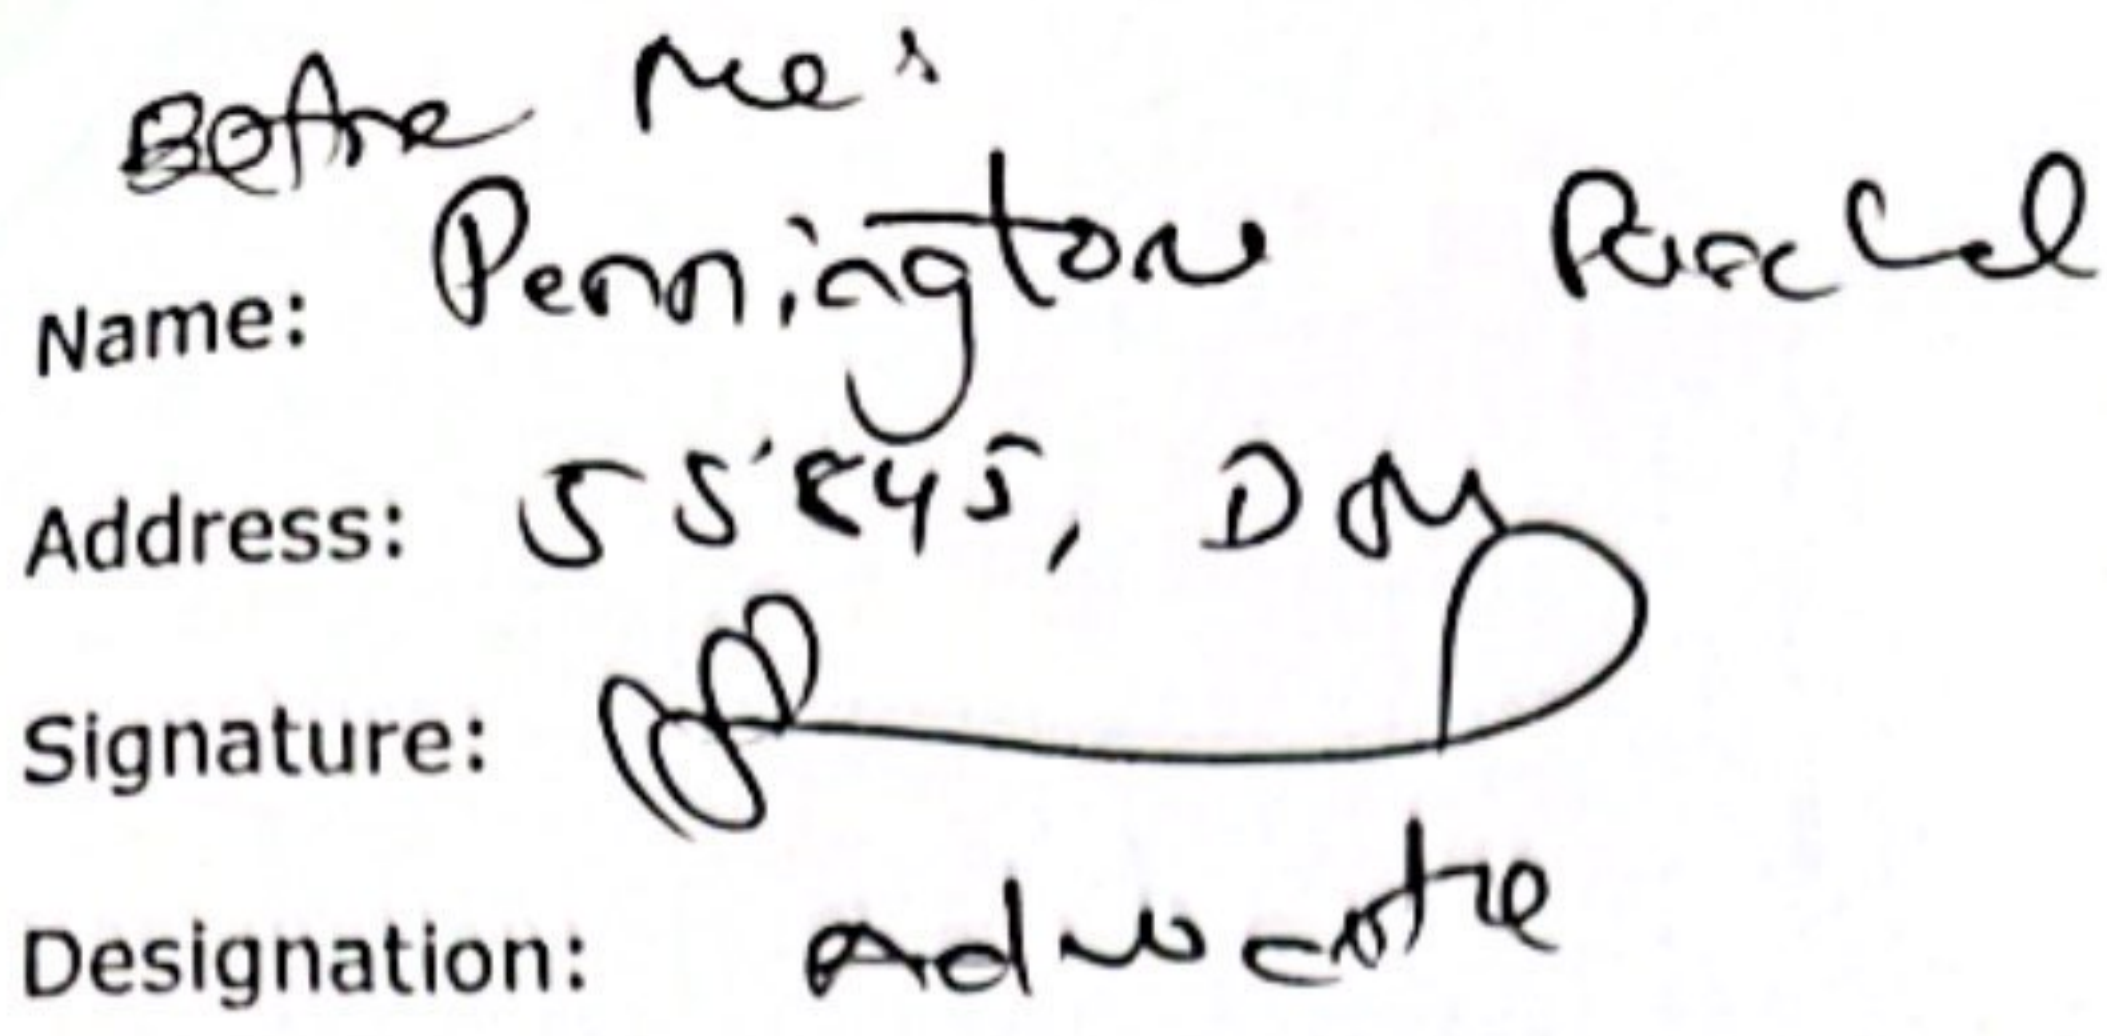 Before me:
Name: Pennington Rachel
Address: DSM
Signature:
Designation: Advocate